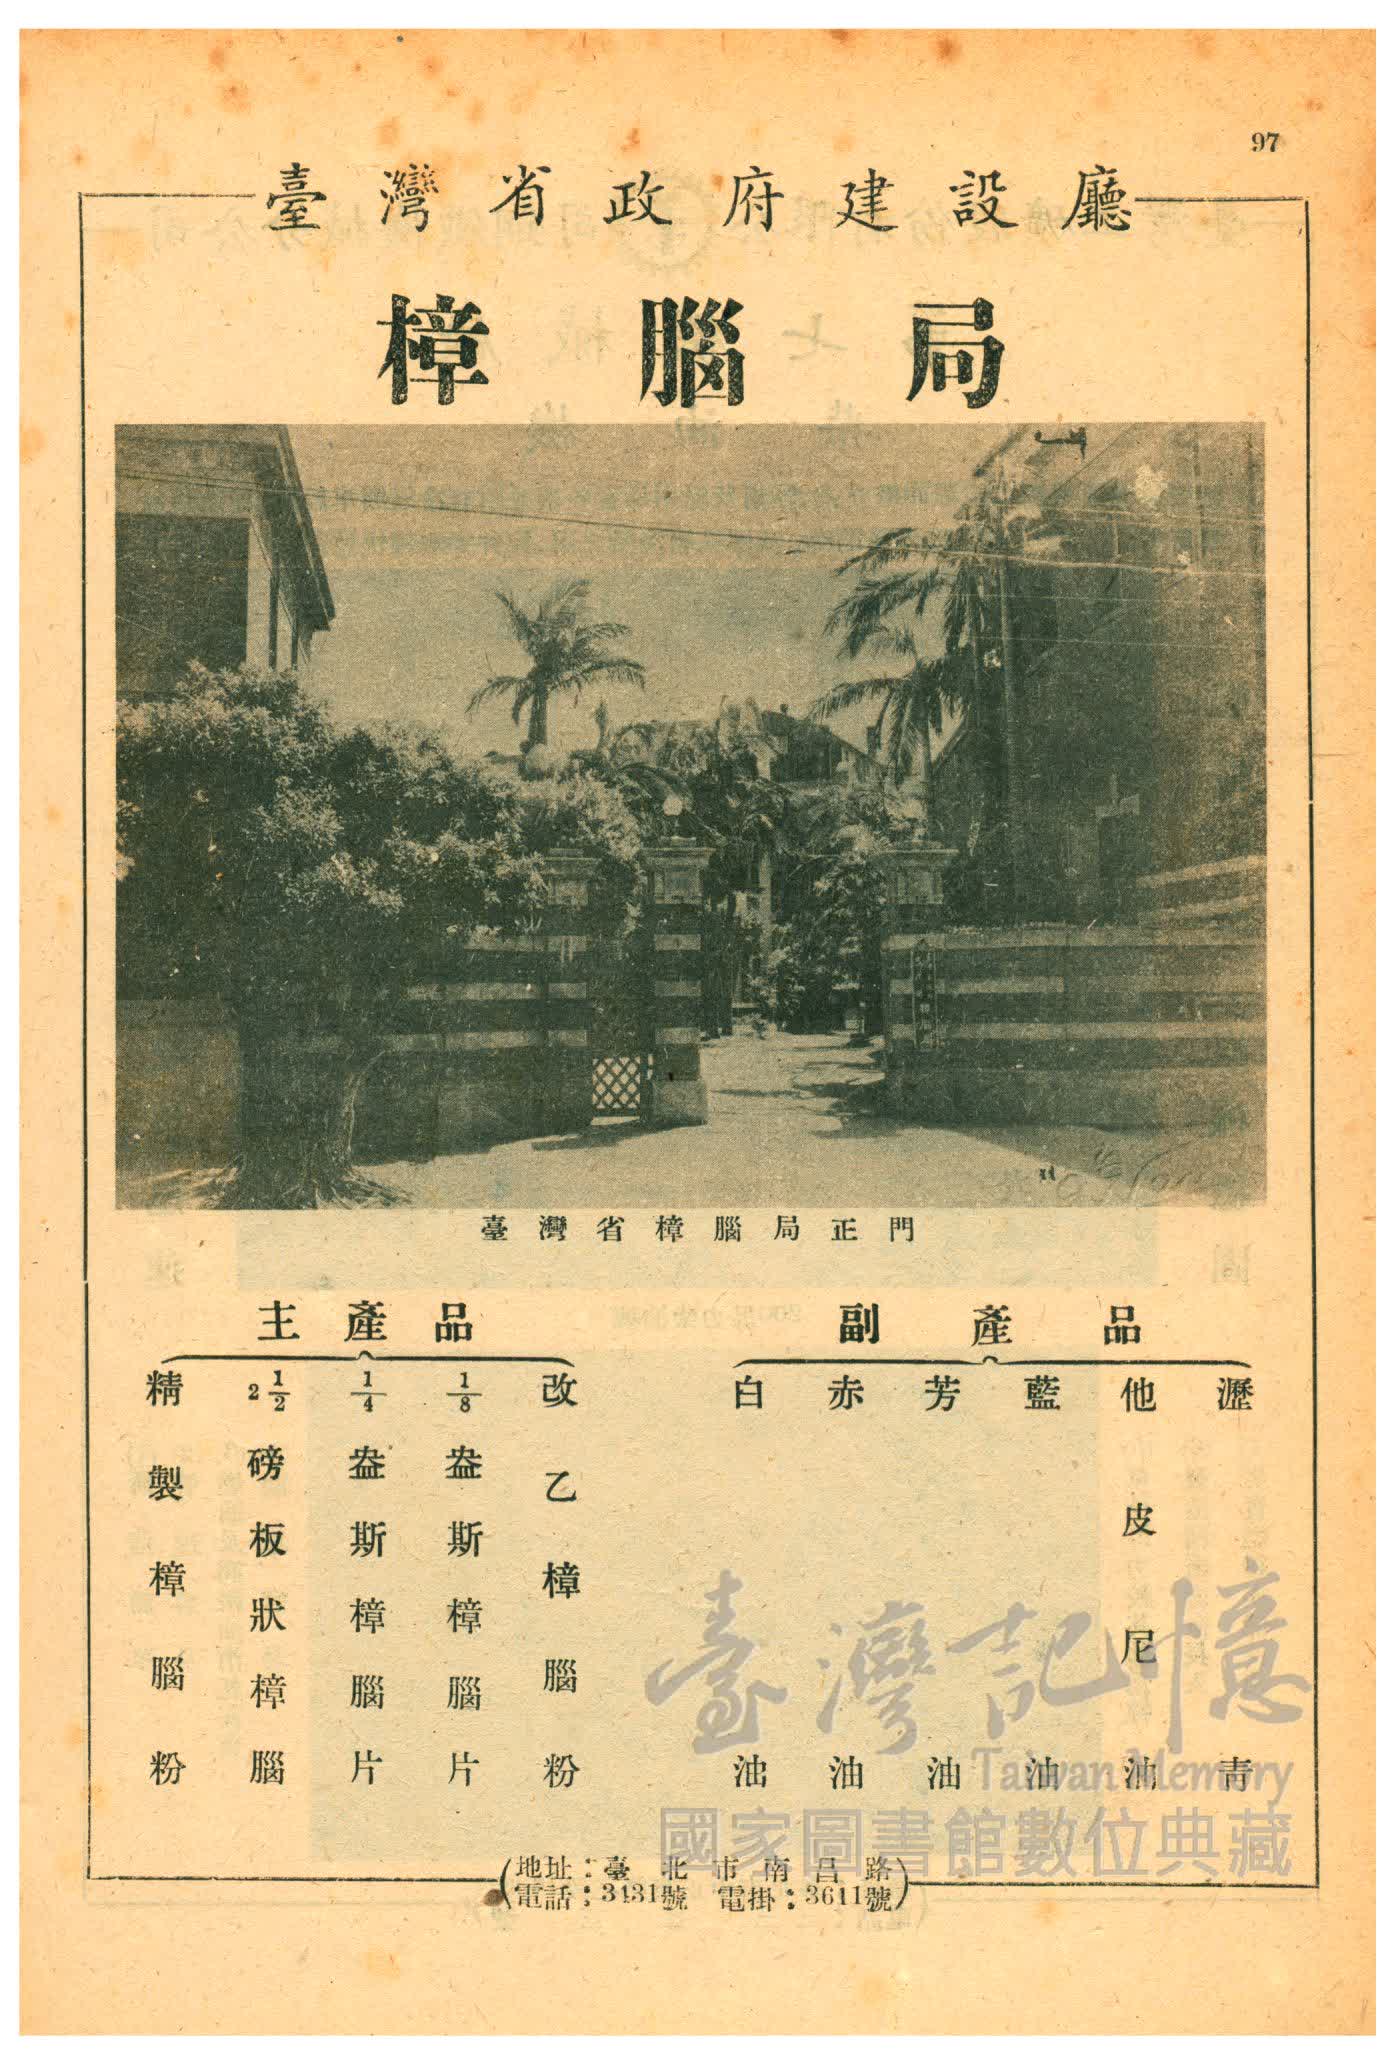 97
臺灣省政府建設廳
樟腦局
臺灣省樟腦局正門
主產品
精製樟腦粉
2 1/2 磅板狀樟腦
1/4 盎斯樟腦片
1/8 盎斯樟腦片
改乙樟腦粉
副產品
白油
赤油
芳油
藍油
他皮尼油
瀝青
地址：臺北市南昌路
電話：3431號 電掛：3611號
臺灣記憶
Taiwan Memory
國家圖書館數位典藏